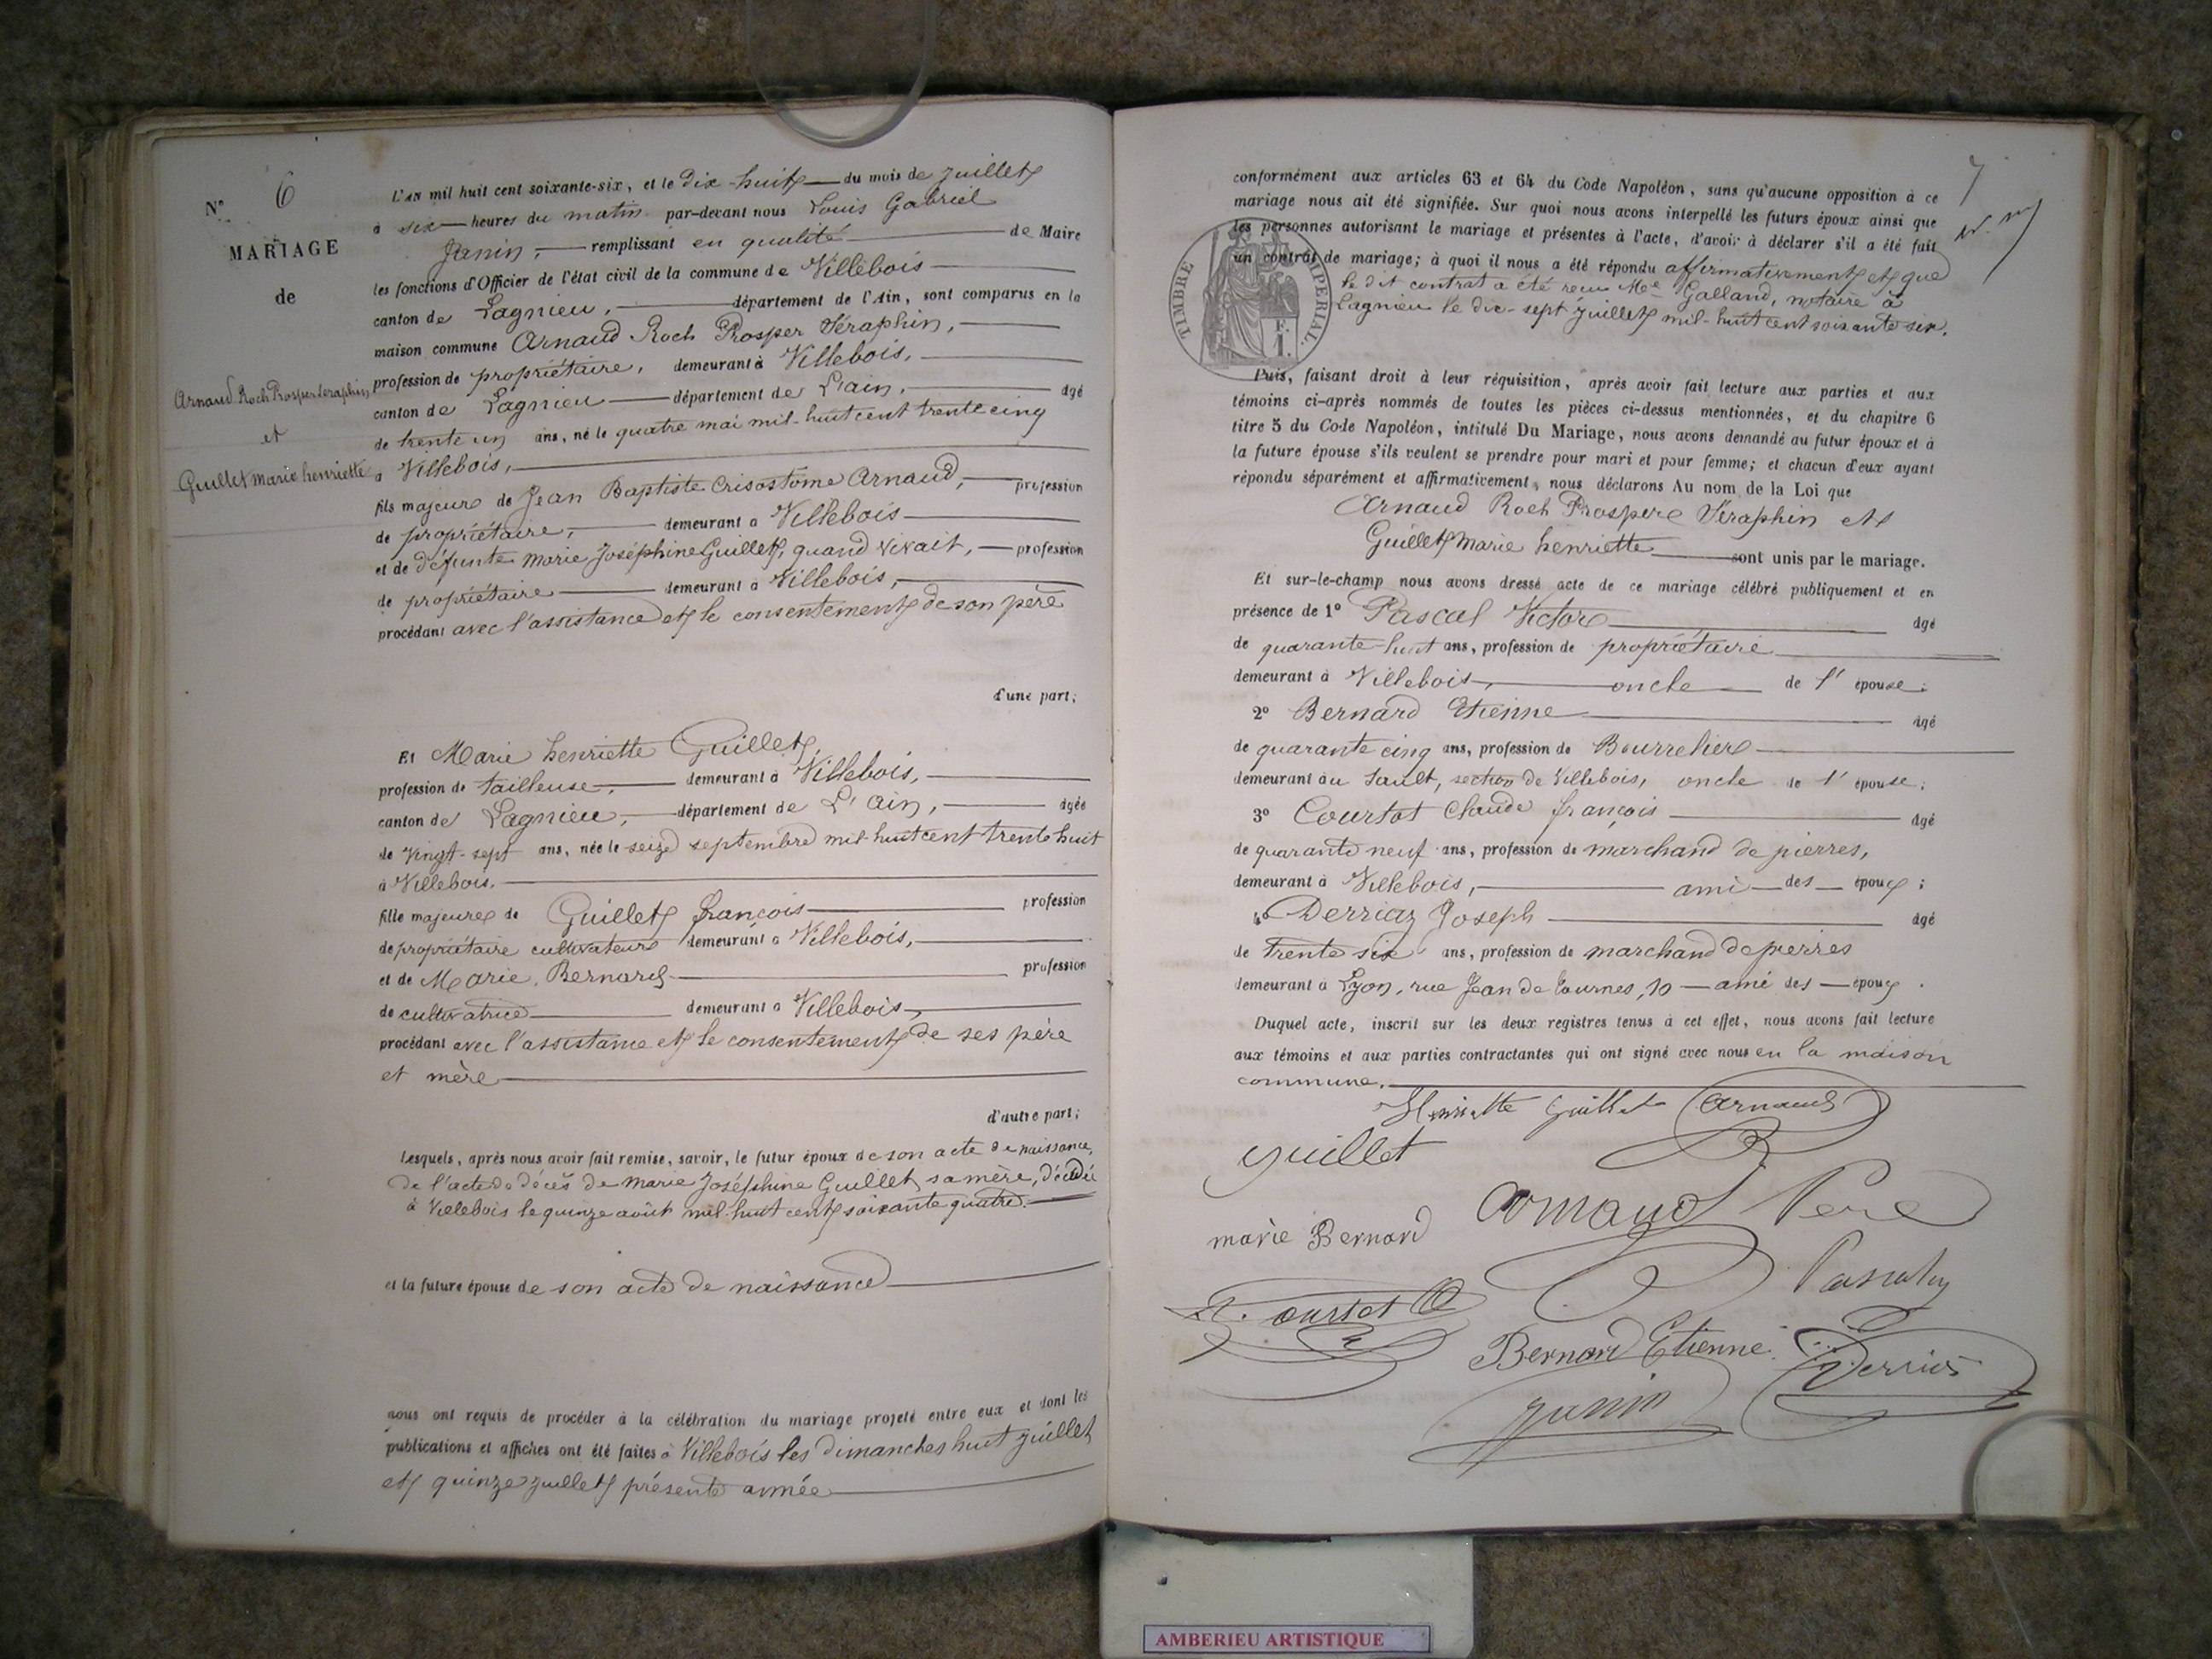 N° 6
MARIAGE
de
Arnaud Roch Prosper Seraphin
et
Guillet marie henriette
L'an mil huit cent soixante-six, et le dix-huit du mois de Juillet
à six heures du matin par-devant nous Louis Gabriel
Janin, remplissant en qualité de Maire
les fonctions d'Officier de l'état civil de la commune de Villebois
canton de Lagnieu, département de l'Ain, sont comparus en la
maison commune Arnaud Roch Prosper Séraphin,
profession de propriétaire, demeurant à Villebois,
canton de Lagnieu département de L'ain, âgé
de trente un ans, né le quatre mai mil-huit cent trente cinq
à Villebois,
fils majeur de Jean Baptiste Crisostôme Arnaud, profession
de propriétaire, demeurant à Villebois
et de défunte Marie Joséphine Guillet, quand vivait, profession
de propriétaire demeurant à Villebois,
procédant avec l'assistance et le consentement de son père
d'une part;
Et Marie henriette Guillet
profession de tailleuse, demeurant à Villebois,
canton de Lagnieu, département de L'ain, âgée
de vingt-sept ans, née le seize septembre mil huit cent trente huit
à Villebois.
fille majeure de Guillet françois profession
de propriétaire cultivateur demeurant à Villebois,
et de Marie Bernard profession
de cultivatrice demeurant à Villebois,
procédant avec l'assistance et le consentement de ses père
et mère
d'autre part;
Lesquels, après nous avoir fait remise, savoir, le futur époux de son acte de naissance,
de l'acte de décès de Marie Joséphine Guillet, sa mère, décédée
à Villebois le quinze août mil-huit cent soixante quatre.
et la future épouse de son acte de naissance
nous ont requis de procéder à la célébration du mariage projeté entre eux et dont les
publications et affiches ont été faites à Villebois les dimanches huit juillet
et quinze juillet présente année
7
conformément aux articles 63 et 64 du Code Napoléon, sans qu'aucune opposition à ce
mariage nous ait été signifiée. Sur quoi nous avons interpellé les futurs époux ainsi que
les personnes autorisant le mariage et présentes à l'acte, d'avoir à déclarer s'il a été fait
un contrat de mariage; à quoi il nous a été répondu affirmativement et que
le dit contrat a été reçu Me Galland, notaire à
Lagnieu le dix-sept juillet mil-huit cent soixante six.
TIMBRE IMPERIAL.
F.
1.
Puis, faisant droit à leur réquisition, après avoir fait lecture aux parties et aux
témoins ci-après nommés de toutes les pièces ci-dessus mentionnées, et du chapitre 6
titre 5 du Code Napoléon, intitulé Du Mariage, nous avons demandé au futur époux et à
la future épouse s'ils veulent se prendre pour mari et pour femme; et chacun d'eux ayant
répondu séparément et affirmativement, nous déclarons Au nom de la Loi que
Arnaud Roch Prosper Séraphin et
Guillet Marie henriette sont unis par le mariage.
Et sur-le-champ nous avons dressé acte de ce mariage célébré publiquement et en
présence de 1° Pascal Victor âgé
de quarante-huit ans, profession de propriétaire
demeurant à Villebois, oncle de l'épouse;
2° Bernard Etienne âgé
de quarante cinq ans, profession de Bourrelier
demeurant au Sault, section de Villebois, oncle de l'épouse;
3° Courtot Claude françois âgé
de quarante neuf ans, profession de marchand de pierres,
demeurant à Villebois, ami des époux;
4° Derriaz Joseph âgé
de trente six ans, profession de marchand de pierres
demeurant à Lyon, rue Jean de Tournes, 10 ami des époux.
Duquel acte, inscrit sur les deux registres tenus à cet effet, nous avons fait lecture
aux témoins et aux parties contractantes qui ont signé avec nous en la maison
commune.
Henriette Guillet Arnaud
Guillet
Arnaud Pere
marie Bernard
Pascal
Bernard Etienne
Janin
AMBERIEU ARTISTIQUE